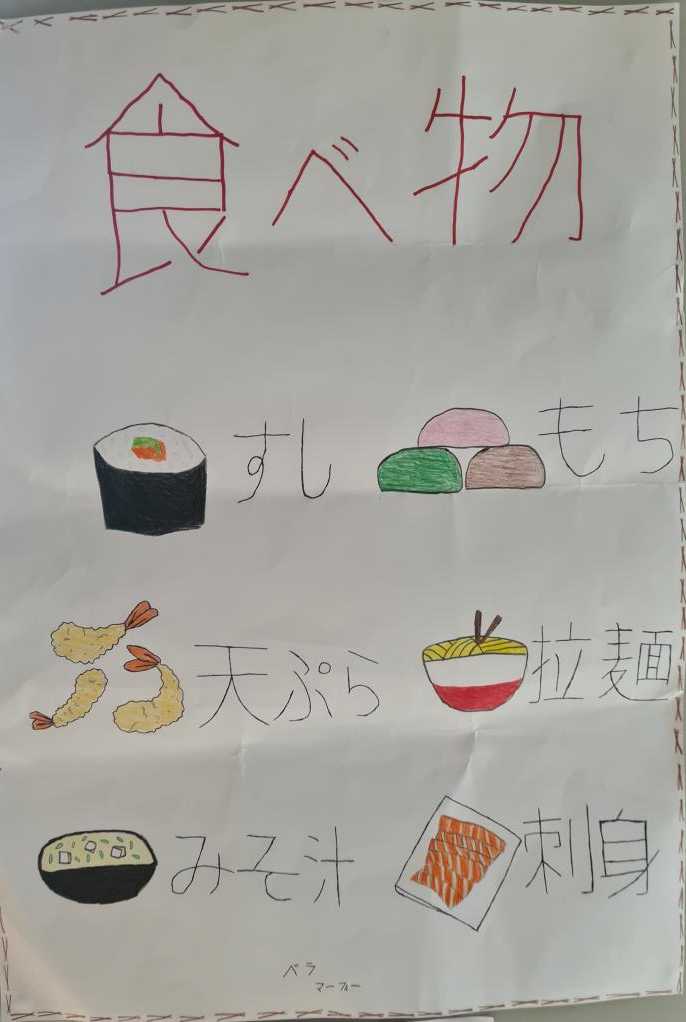 食べ物
すし
もち
天ぷら
拉麺
みそ汁
刺身
ベラ
マーフィー